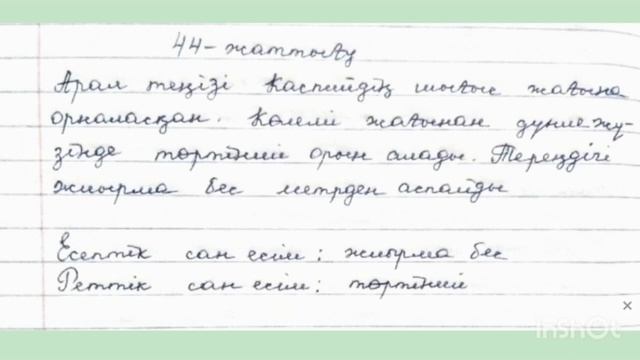 44-жаттығу
Арал теңізі Каспийдің шығыс жағына
орналасқан. Көлемі жағынан дүние жү-
зінде төртінші орын алады. Тереңдігі
жиырма бес метрден аспайды
Есептік сан есім: жиырма бес
Реттік сан есім: төртінші
InShOt